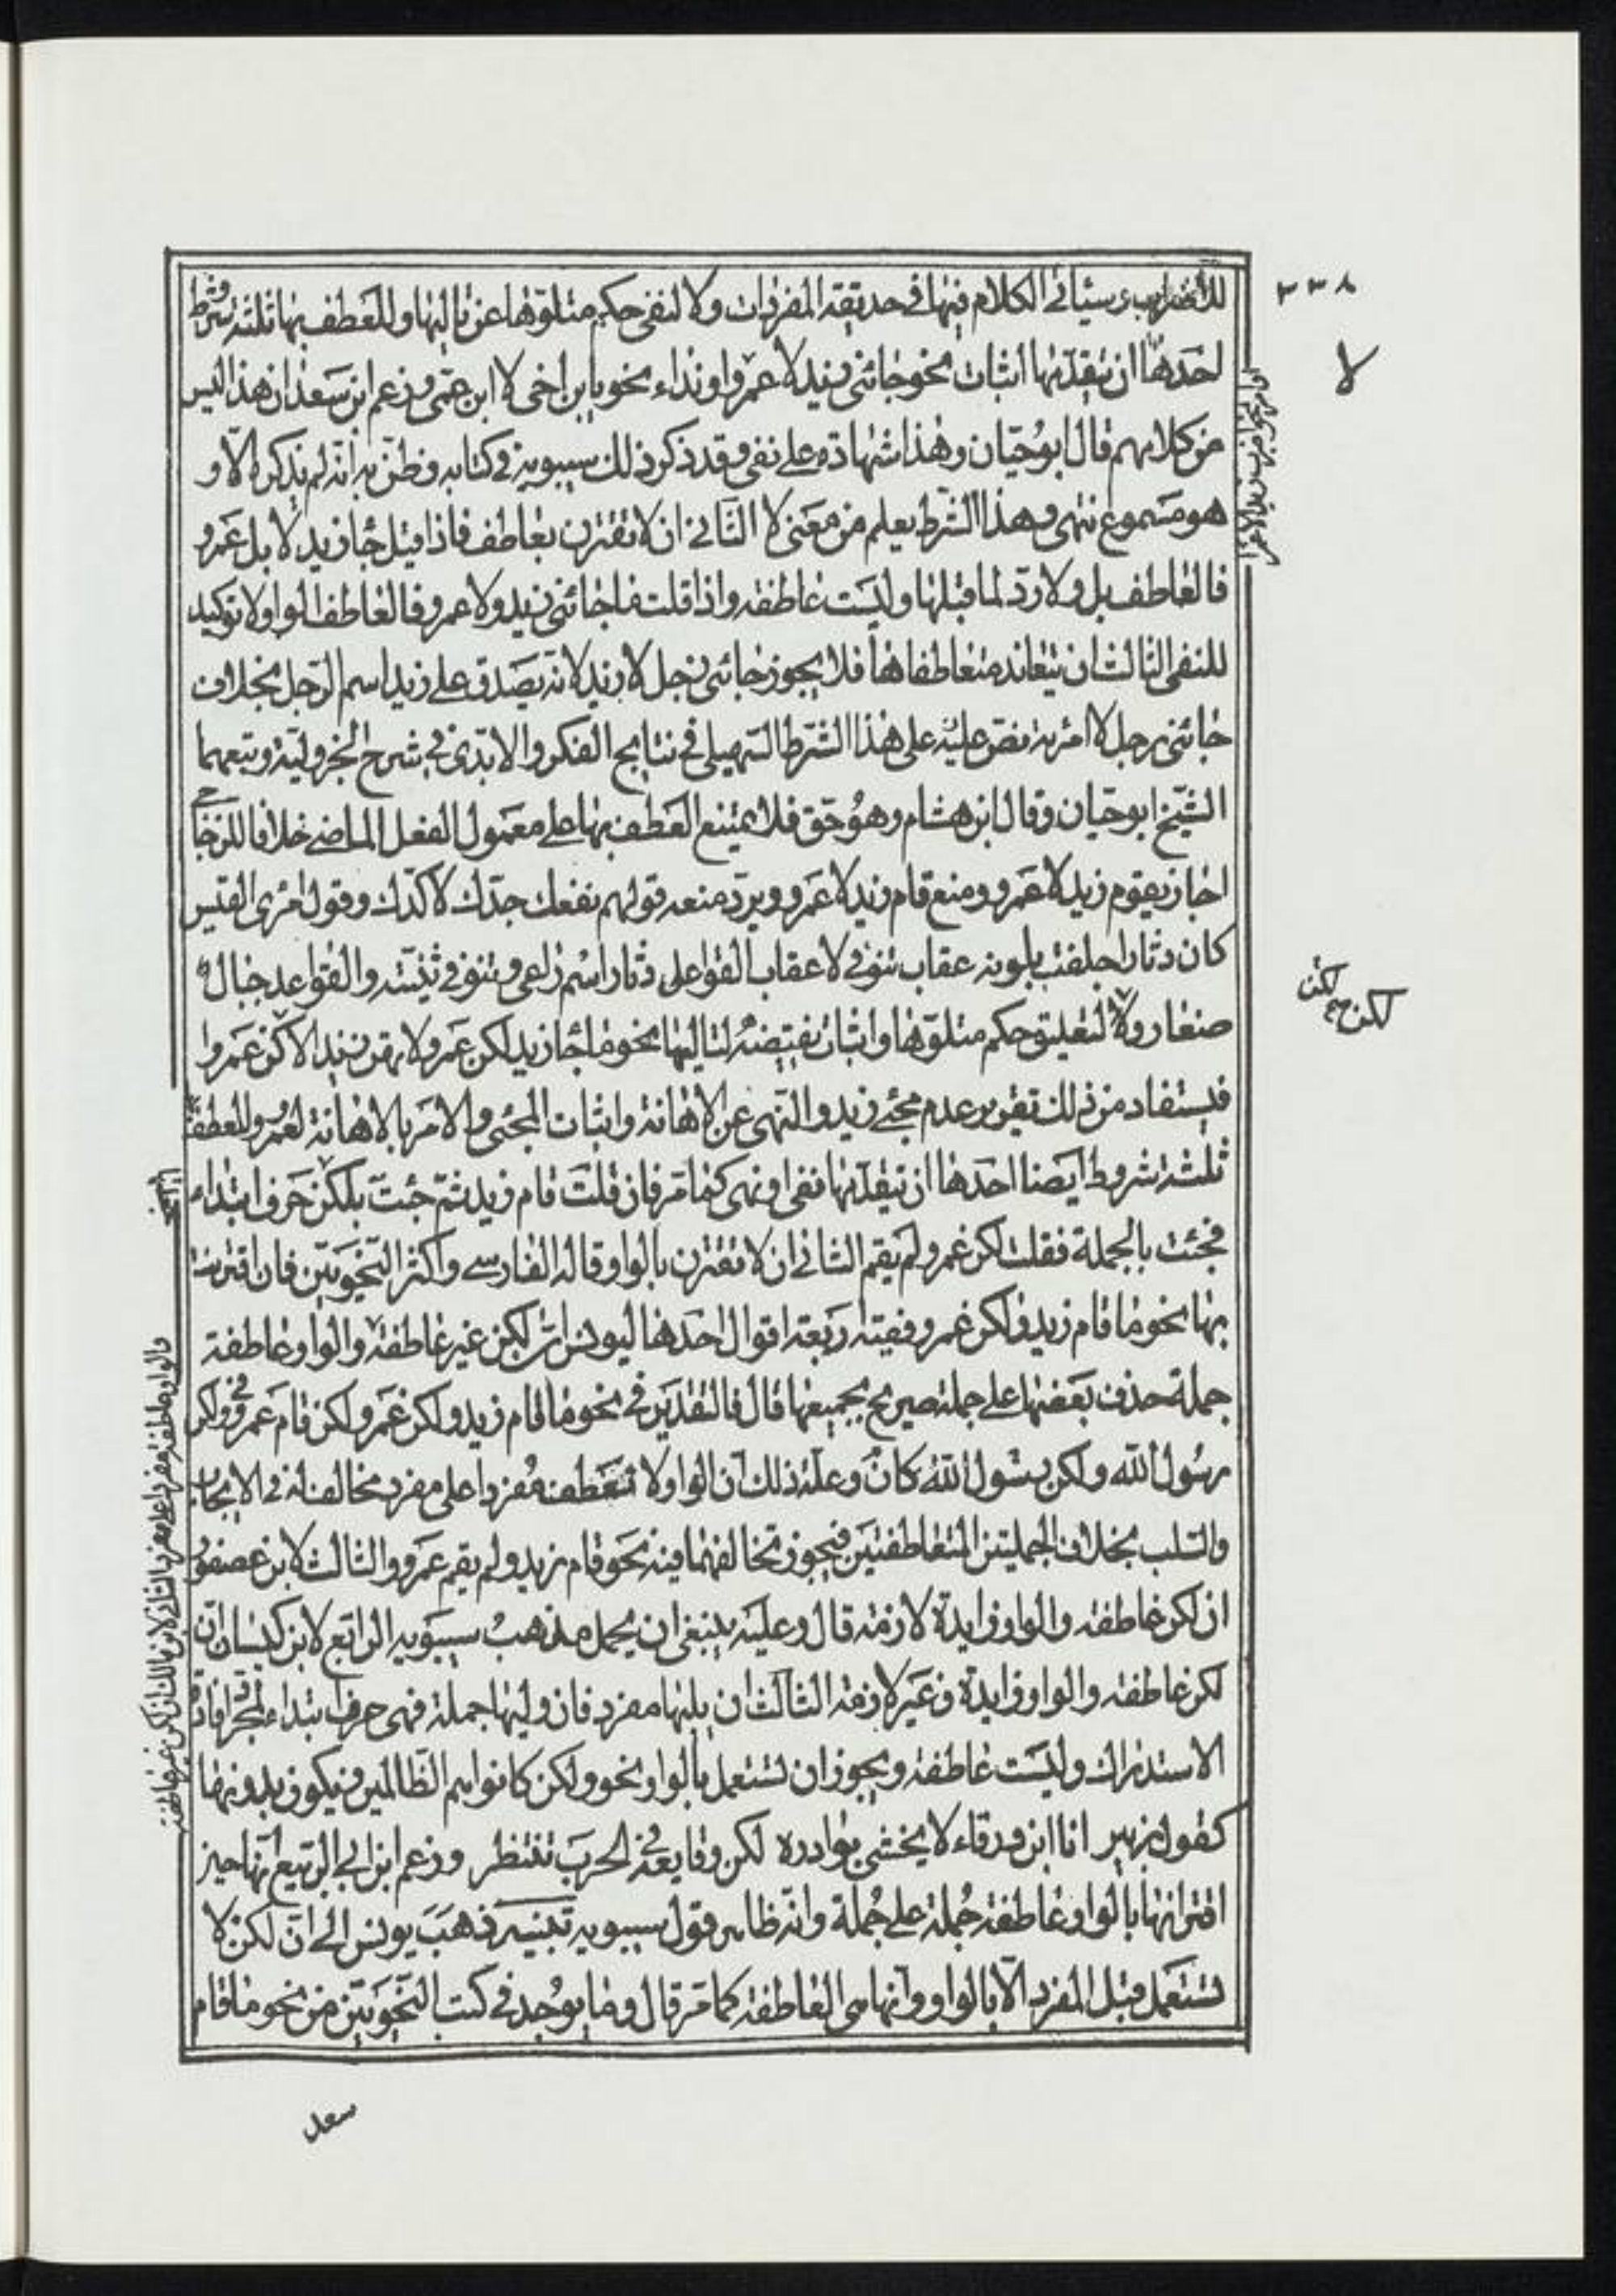 ٣٣٨
للاضراب وسيأتي الكلام فيها في حديقة المفردات ولا لنفي حكم متلوّها عن تاليها وللعطف بها ثلثة شروط
لا
احدها ان يتقدّمها اثبات نحو جائني زيد لا عمرو او نداء نحو يابن اخي لا ابن عمّي وزعم ابن سعدان هذا ليس
من كلامهم قال ابو حيّان وهذا شهادة على نفي وقد ذكر ذلك سيبويه في كتابه وظنّ به انه لم يذكره الّا و
هو مسموع نتهى وهذا الشرط يعلم من معنى لا الثاني ان لا تقترن بعاطف فاذا قيل جاء زيد لا بل عمرو
فالعاطف بل ولا ردّ لما قبلها وليست عاطفة واذا قلت ما جائني زيد ولا عمرو فالعاطف الواو ولا توكيد
للنفي الثالث ان يتعاند متعاطفاها فلا يجوز جائني رجل لا زيد لانه يصدق على زيد اسم الرّجل بخلاف
جائني رجل لا امرئة نصّ عليه على هذا الشرط السّهيلي في نتايج الفكر والابّدي في شرح الجزوليّة وتبعهما
الشيخ ابو حيّان وقال ابن هشام وهو حقّ فلا يمتنع العطف بها على معمول الفعل الماضي خلافا للزجاجي
اجاز يقوم زيد لا عمرو ومنع قام زيد لا عمرو ويردّ منعه قولهم نفعك جدّك لا كدّك وقول امرئ القيس
كان دثارا حلقت بلبونه عقاب تنوفي لا عقاب القواعل دثار اسم راعي وتنوفي ثنيّته والقواعد جبال
لكن
صغار ولا لتعليق حكم متلوّها واثبات نقيضه لتاليها نحو ما جاء زيد لكن عمرو ولا تهن زيدا لاكن عمروا
فيستفاد من ذلك تقرير عدم مجئ زيد والنهي عن الاهانة واثبات المجئ والامر بالاهانة لعمرو وللعطف
ثلثة شروط ايضا احدها ان تتقدّمها نفي او نهي كما مرّ فان قلت قام زيد ثمّ جئت بلكن حرف ابتداء
فجئت بالجملة فقلت لكن عمرو لم يقم الثاني ان لا تقترن بالواو قاله الفارسي واكثر النّحويّين فان اقترنت
بها نحو ما قام زيد ولكن عمرو ففيه اربعة اقوال احدها ليونس ان لكن غير عاطفة والواو عاطفة
جملة حذف بعضها على جملة صريح بجميعها قال فالتقدير في نحو ما قام زيد ولكن عمرو ولكن قام عمرو وفي ولكن
رسول الله ولكن رسول الله كان وعلة ذلك ان الواو لا تعطف مفردا على مفرد مخالف له في الايجاب
والسلب بخلاف الجملتين المتعاطفتين فيجوز تخالفهما فيه نحو قام زيد ولم يقم عمرو والثالث لابن عصفور
ان لكن عاطفة والواو زايدة لازمة قال وعليه ينبغي ان يحمل مذهب سيبويه الرابع لابن كيسان انّ
لكن عاطفة والواو زايدة وغير لازمة الثالث ان يليها مفرد فان وليها جملة فهي حرف ابتداء لمجرّد افادة
الاستدراك وليست عاطفة ويجوز ان تستعمل بالواو نحو ولكن كانوا هم الظالمين ويكون بدونها
كقول زهير انا ابن ورقاء لا يخشى بوادره لكن وقايعه في الحرب تنتظر وزعم ابن ابي الربيع انها حين
اقترانها بالواو عاطفة جملة على جملة وانه ظاهر قول سيبويه تنبيه ذهب يونس الى انّ لكن لا
تستعمل قبل المفرد الّا بالواو وانها هي العاطفة كما مرّ قال وما يوجد في كتب النّحويّين من نحو ما قام
او امر نحو اضرب زيدا لا عمرا
والواو عاطفة مفردا على مفرد الثاني لابن مالك ان لكن غير عاطفة
سعد